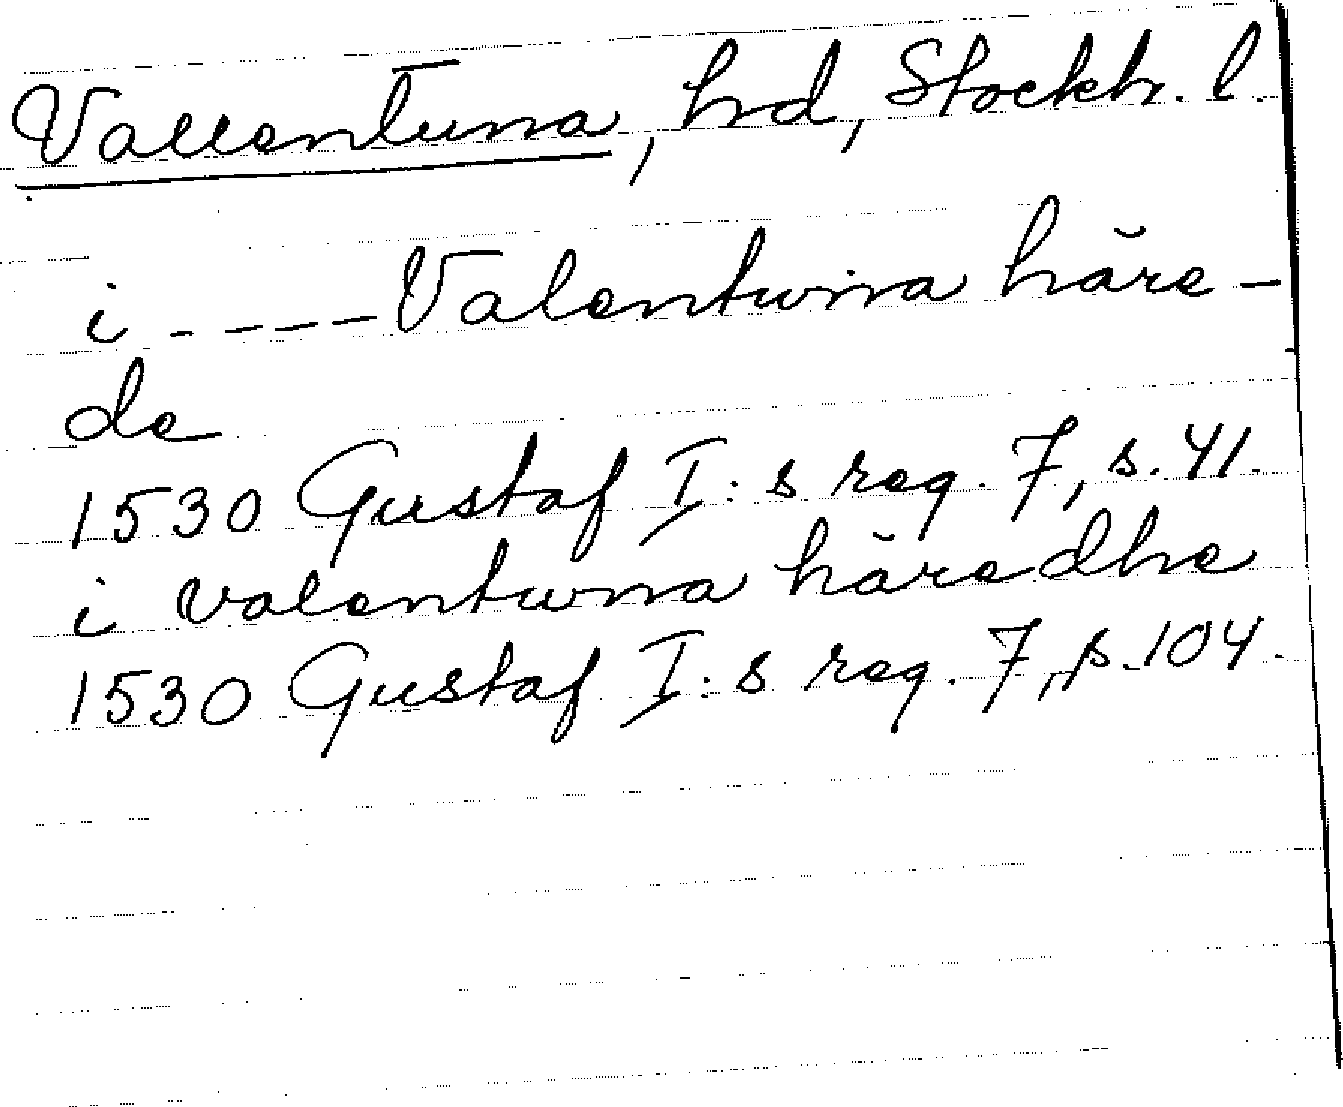 Vallentuna, hd, Stockh. l.
i - - - - Valentwna häre-
de
1530 Gustaf I:s reg. 7, s. 41.
i valentwna häredhe
1530 Gustaf I:s reg. 7, s. 104.